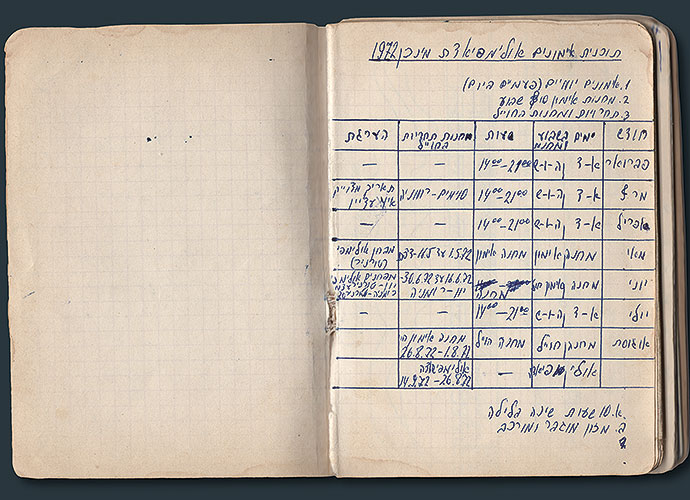 תוכנית אימונים אולימפיאדת מינכן 1972
1. אימונים יומיים (פעמיים ביום)
2. מחנות אימון סוף שבוע
3. תחרויות ומחנות בחו״ל
חודש ימים בשבוע ומחנות שעות מחנות תחרויות בחו״ל הערות
פברואר א-ד ו-ש 14⁰⁰-21⁰⁰ — —
מרץ א-ד ו-ש 14⁰⁰-21⁰⁰ רומניה תאריך מדוייק אין עדיין
אפריל א-ד ו-ש 14⁰⁰-21⁰⁰ — —
מאי מחנה אימון מחנה אימון 1.5.72 מבחן אולימפי
יוני מחנה מחנה 16.6.72 עד 30.6.72 יוון-רומניה
יולי א-ד ו-ש 14⁰⁰-21⁰⁰ — —
אוגוסט מחנה חו״ל מחנה אימון 26.8.72-1.8.72
— אולימפיאדה 26.8.72
א. 10 שעות שינה בלילה
ב. מזון מוגבר ומורכב